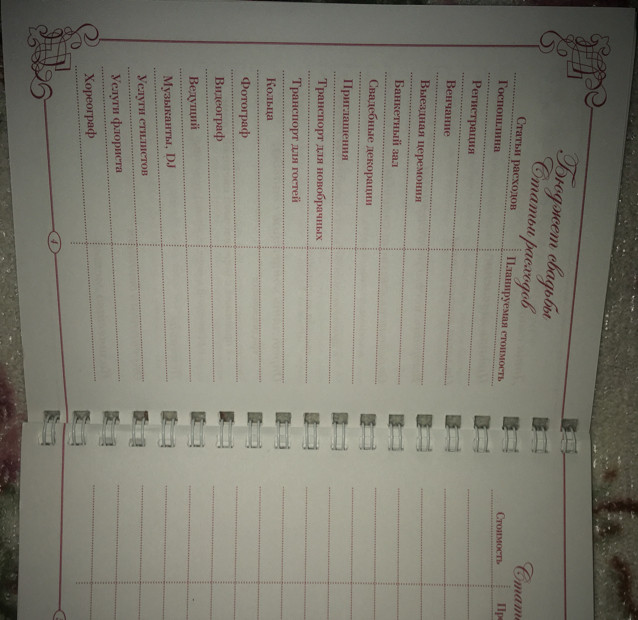 Бюджет свадьбы
Статьи расходов
Статьи расходов Планируемая стоимость
Госпошлина
Регистрация
Венчание
Выездная церемония
Банкетный зал
Свадебные декорации
Приглашения
Транспорт для новобрачных
Транспорт для гостей
Кольца
Фотограф
Видеограф
Ведущий
Музыканты, DJ
Услуги стилистов
Услуги флориста
Хореограф
4
Стоимость